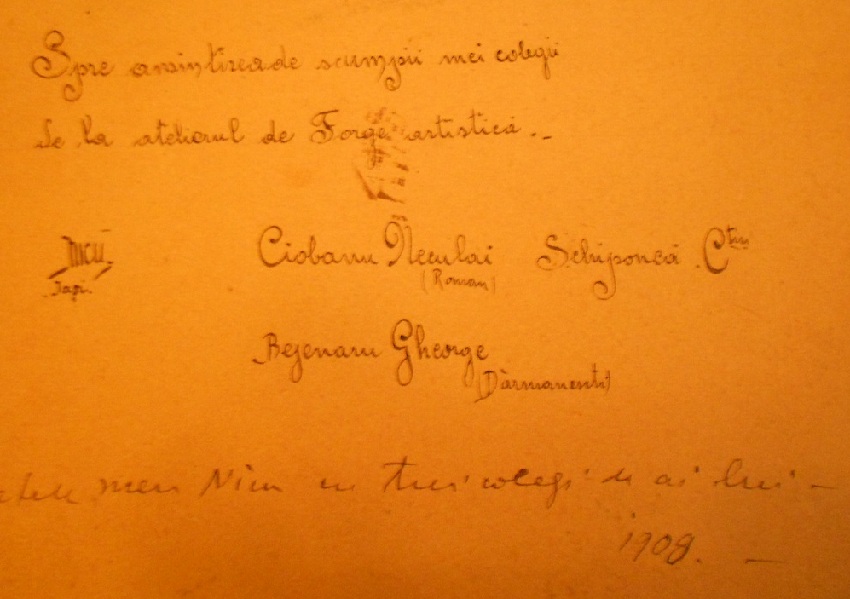 Spre amintirea de scumpii mei colegii
de la atelierul de Forge artistica.-
Nicu Ciobanu Neculai Schiponca C-tin
Iaşi. (Roman)
Bejenaru Gheorge
(Dărmanenti)
meu Nicu cu trei colegi de ai lui -
1908. -